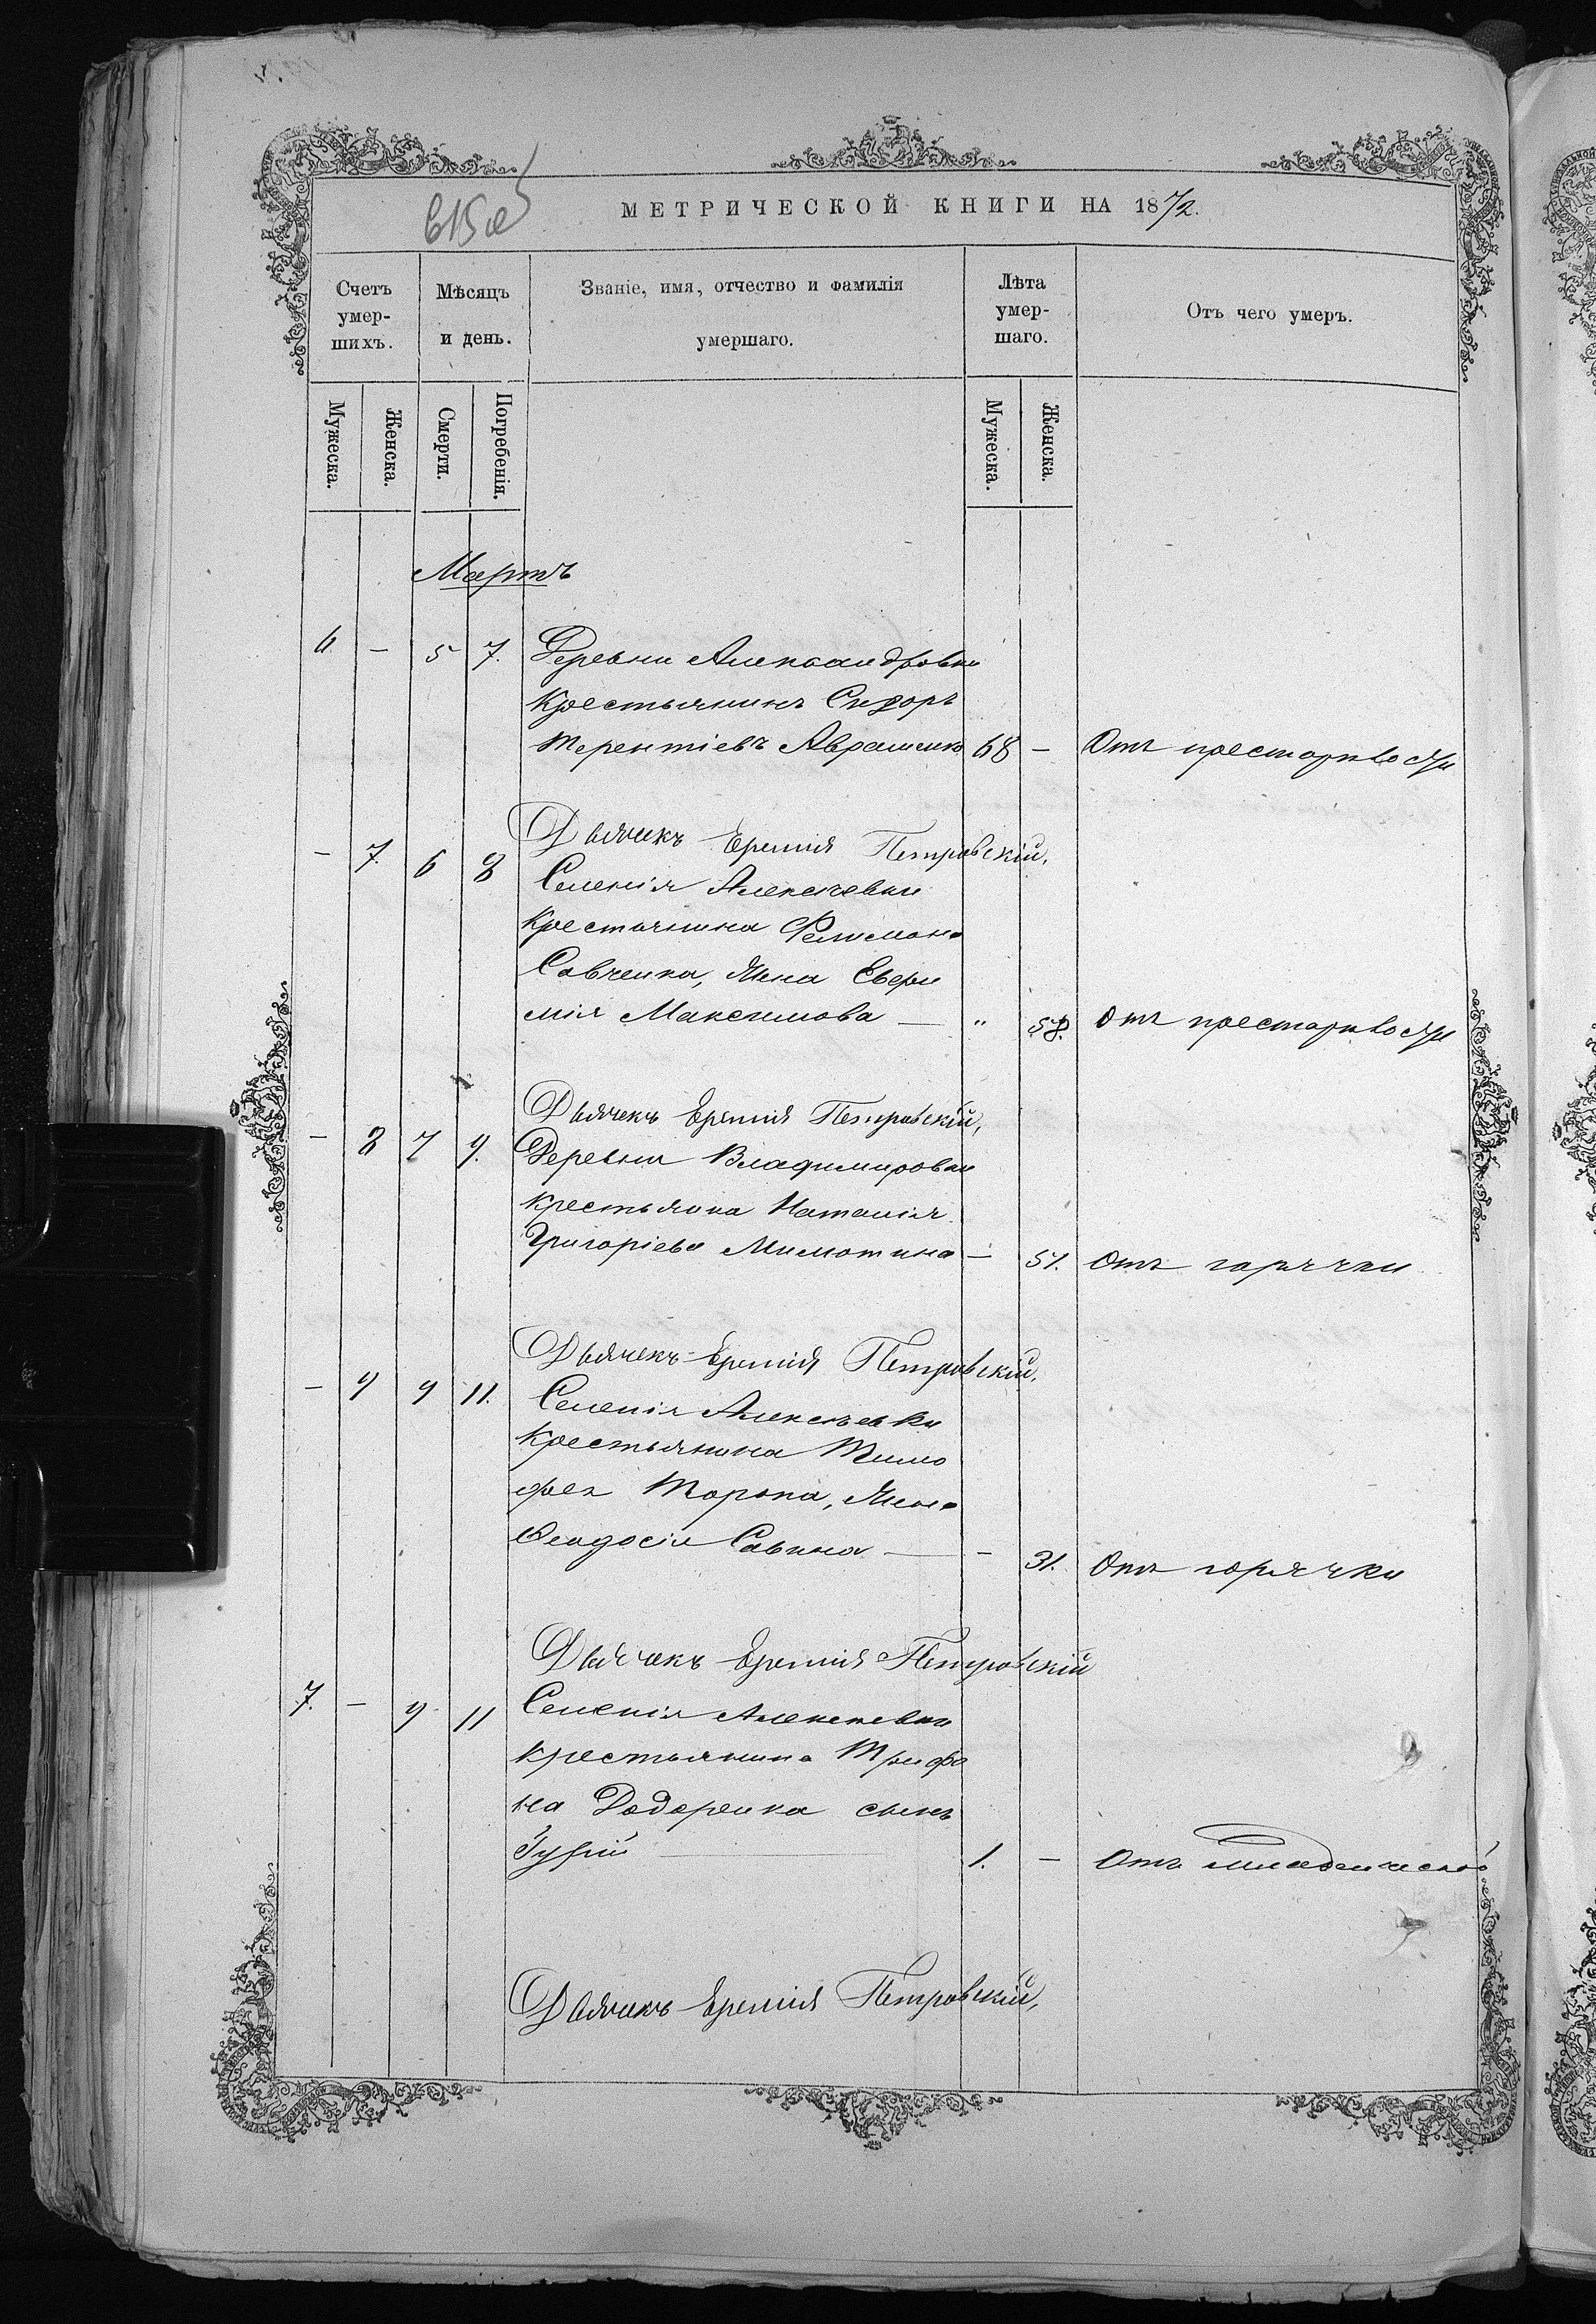 615 об
МЕТРИЧЕСКОЙ КНИГИ НА 1872.
Счетъ умершихъ.
Мѣсяцъ и день.
Званіе, имя, отчество и фамилія умершаго.
Лѣта умершаго.
Отъ чего умеръ.
Мужеска.
Женска.
Смерти.
Погребенія.
Мужеска.
Женска.
Мартъ
6 - 5 7. Деревни Александровки
Крестьянинъ Сидоръ
Терентіевъ Аврашенко 68 - Отъ престарѣлости
Дьячекъ Еремія Петровскій.
- 7. 6 8 Селенія Алексѣевки
Крестянина Филимона
Савченка, жена Евфи
мія Максимова — " 58. Отъ престарѣлости
Дьячекъ Еремія Петровскій,
- 8 7 9. Деревни Владимировки
крестьянка Наталія
Григоріева - 51. Отъ горячки
Дьячекъ Еремія Петровскій.
- 9 9 11. Селенія Алексѣевки
Крестьянина Тимо
фея Торопа, жена
Феодосія Савина — - 31. Отъ горячки
Дьячекъ Еремія Петровскій
7. - 9 11 Селенія Алексѣевки
крестьянина Трифо
на Додоренка сынъ
Гурій — 1. - Отъ младенческой
Дьячекъ Еремія Петровскій,